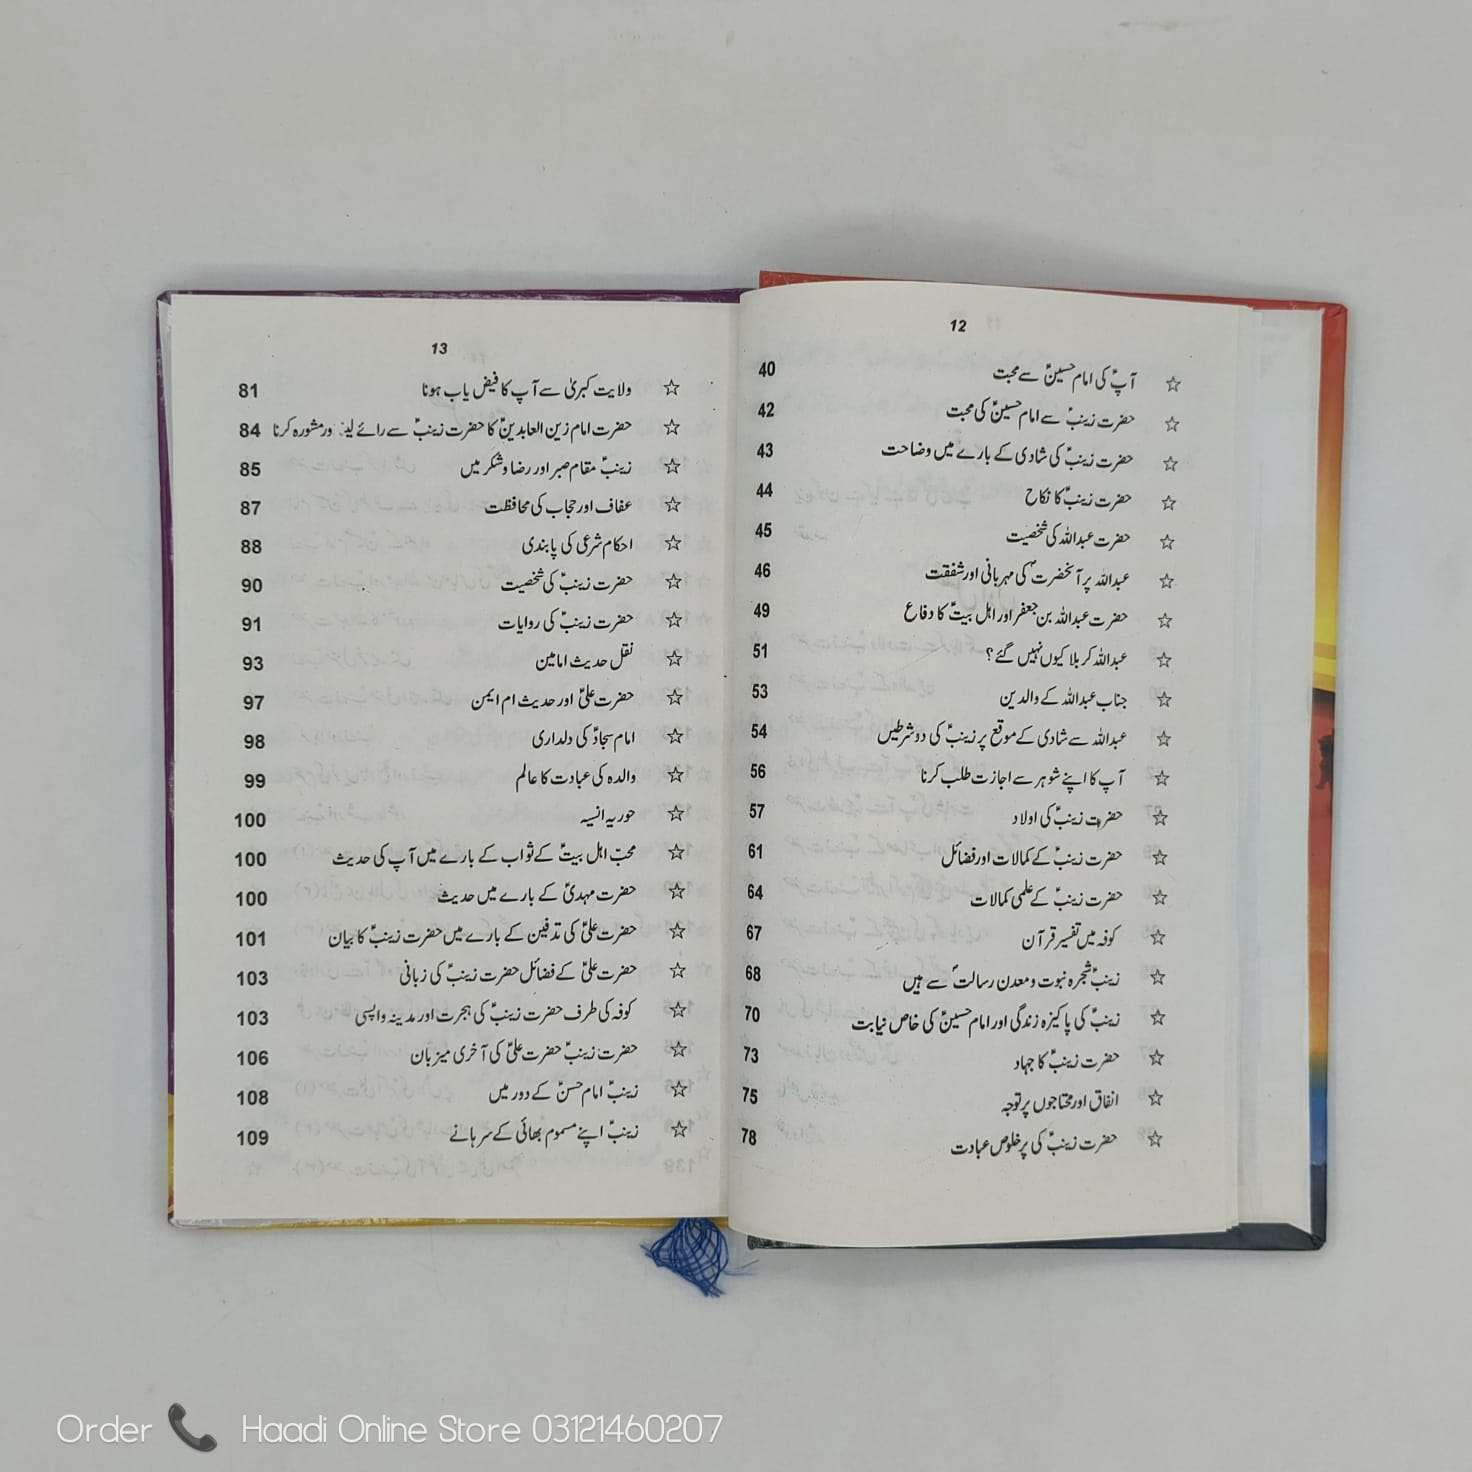 12
☆ آپؑ کی امام حسینؑ سے محبت 40
☆ حضرت زینبؑ سے امام حسینؑ کی محبت 42
☆ حضرت زینبؑ کی شادی کے بارے میں وضاحت 43
☆ حضرت زینبؑ کا نکاح 44
☆ حضرت عبداللہ کی شخصیت 45
☆ عبداللہ پر آنحضرتؐ کی مہربانی اور شفقت 46
☆ حضرت عبداللہ بن جعفر اور اہل بیتؑ کا دفاع 49
☆ عبداللہ کربلا کیوں نہیں گئے؟ 51
☆ جناب عبداللہ کے والدین 53
☆ عبداللہ سے شادی کے موقع پر زینبؑ کی دو شرطیں 54
☆ آپ کا اپنے شوہر سے اجازت طلب کرنا 56
☆ حضرت زینبؑ کی اولاد 57
☆ حضرت زینبؑ کے کمالات اور فضائل 61
☆ حضرت زینبؑ کے علمی کمالات 64
☆ کوفہ میں تفسیر قرآن 67
☆ زینبؑ شجرہ نبوت و معدن رسالتؐ سے ہیں 68
☆ زینبؑ کی پاکیزہ زندگی اور امام حسینؑ کی خاص نیابت 70
☆ حضرت زینبؑ کا جہاد 73
☆ انفاق اور محتاجوں پر توجہ 75
☆ حضرت زینبؑ کی پرخلوص عبادت 78
13
☆ ولایت کبریٰ سے آپ کا فیض یاب ہونا 81
☆ حضرت امام زین العابدینؑ کا حضرت زینبؑ سے رائے مشورہ کرنا 84
☆ زینبؑ مقام صبر اور رضا و شکر میں 85
☆ عفاف اور حجاب کی محافظت 87
☆ احکام شرعی کی پابندی 88
☆ حضرت زینبؑ کی شخصیت 90
☆ حضرت زینبؑ کی روایات 91
☆ نقل حدیث امامین 93
☆ حضرت علیؑ اور حدیث ام ایمن 97
☆ امام سجادؑ کی دلداری 98
☆ والدہ کی عبادت کا عالم 99
☆ حوریہ انسیہ 100
☆ محبّ اہل بیتؑ کے ثواب کے بارے میں آپ کی حدیث 100
☆ حضرت مہدیؑ کے بارے میں حدیث 100
☆ حضرت علیؑ کی تدفین کے بارے میں حضرت زینبؑ کا بیان 101
☆ حضرت علیؑ کے فضائل حضرت زینبؑ کی زبانی 103
☆ کوفہ کی طرف حضرت زینبؑ کی ہجرت اور مدینہ واپسی 103
☆ حضرت زینبؑ حضرت علیؑ کی آخری میزبان 106
☆ زینبؑ امام حسنؑ کے دور میں 108
☆ زینبؑ اپنے مسموم بھائی کے سرہانے 109
Order Haadi Online Store 03121460207